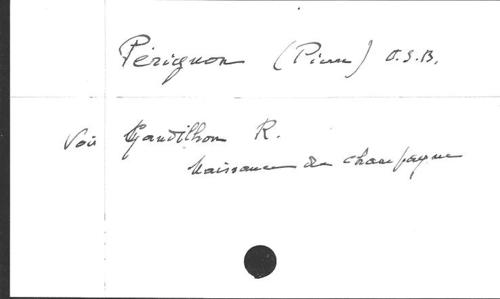 Pérignon (Pierre) O.S.B.
Voir Gandilhon R.
Naissance du champagne